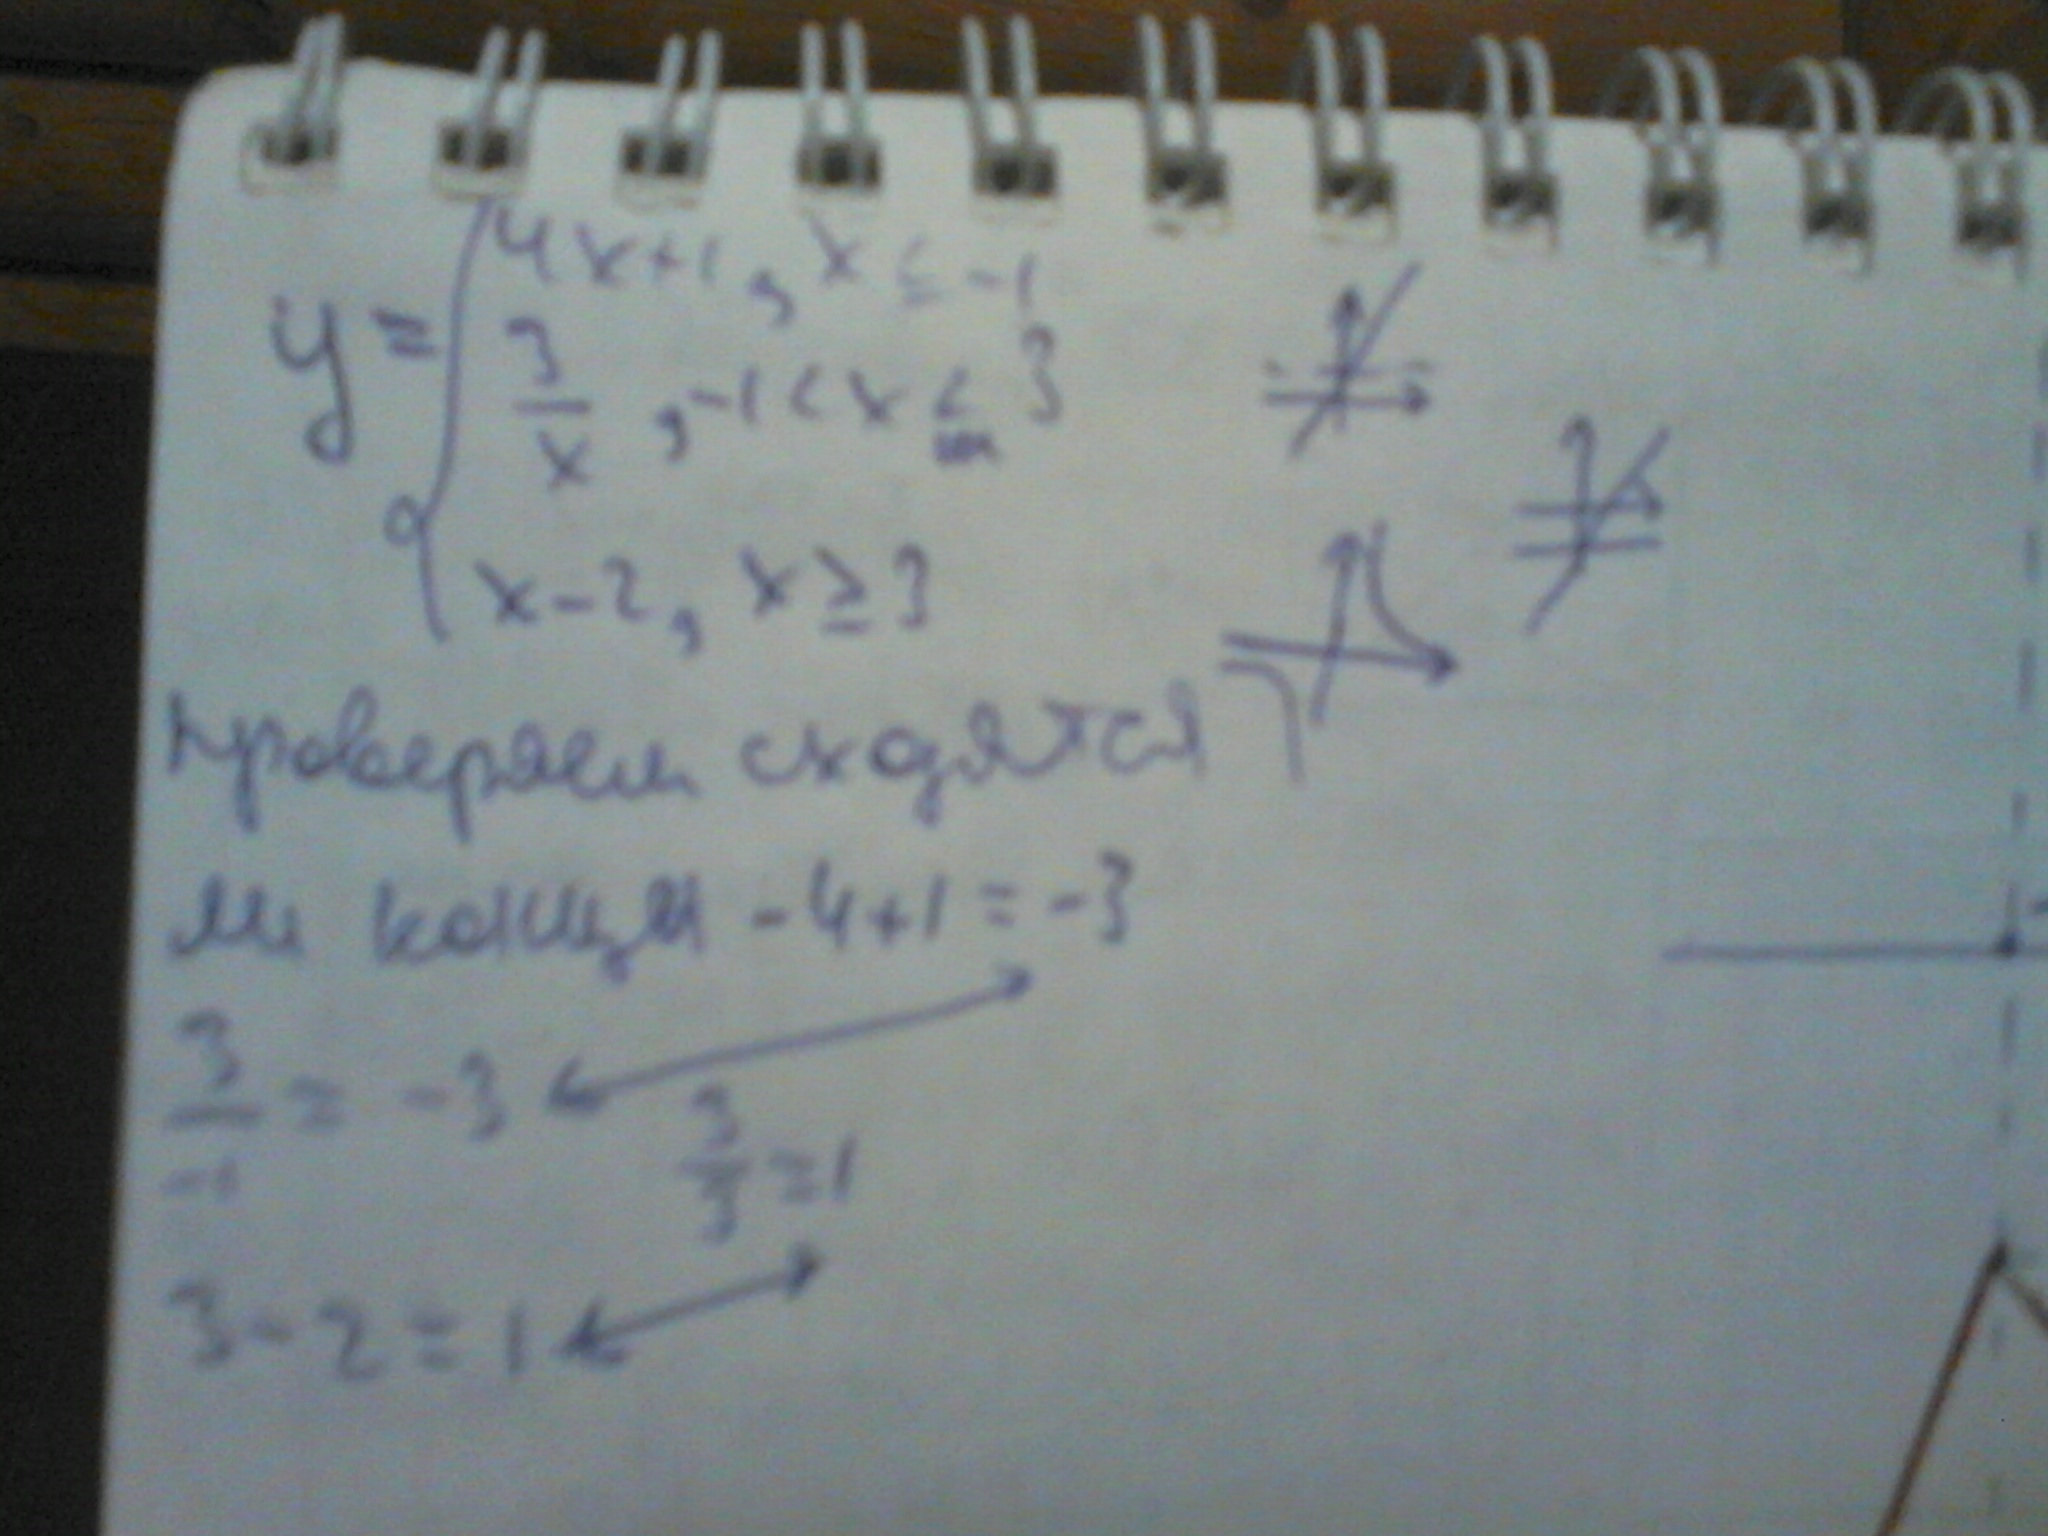 y = { 4x+1, x ≤ -1
3/x, -1 < x ≤ 3
x-2, x ≥ 3
проверяем сходятся
ли концы -4+1 = -3
3/-1 = -3
3/3 = 1
3-2 = 1